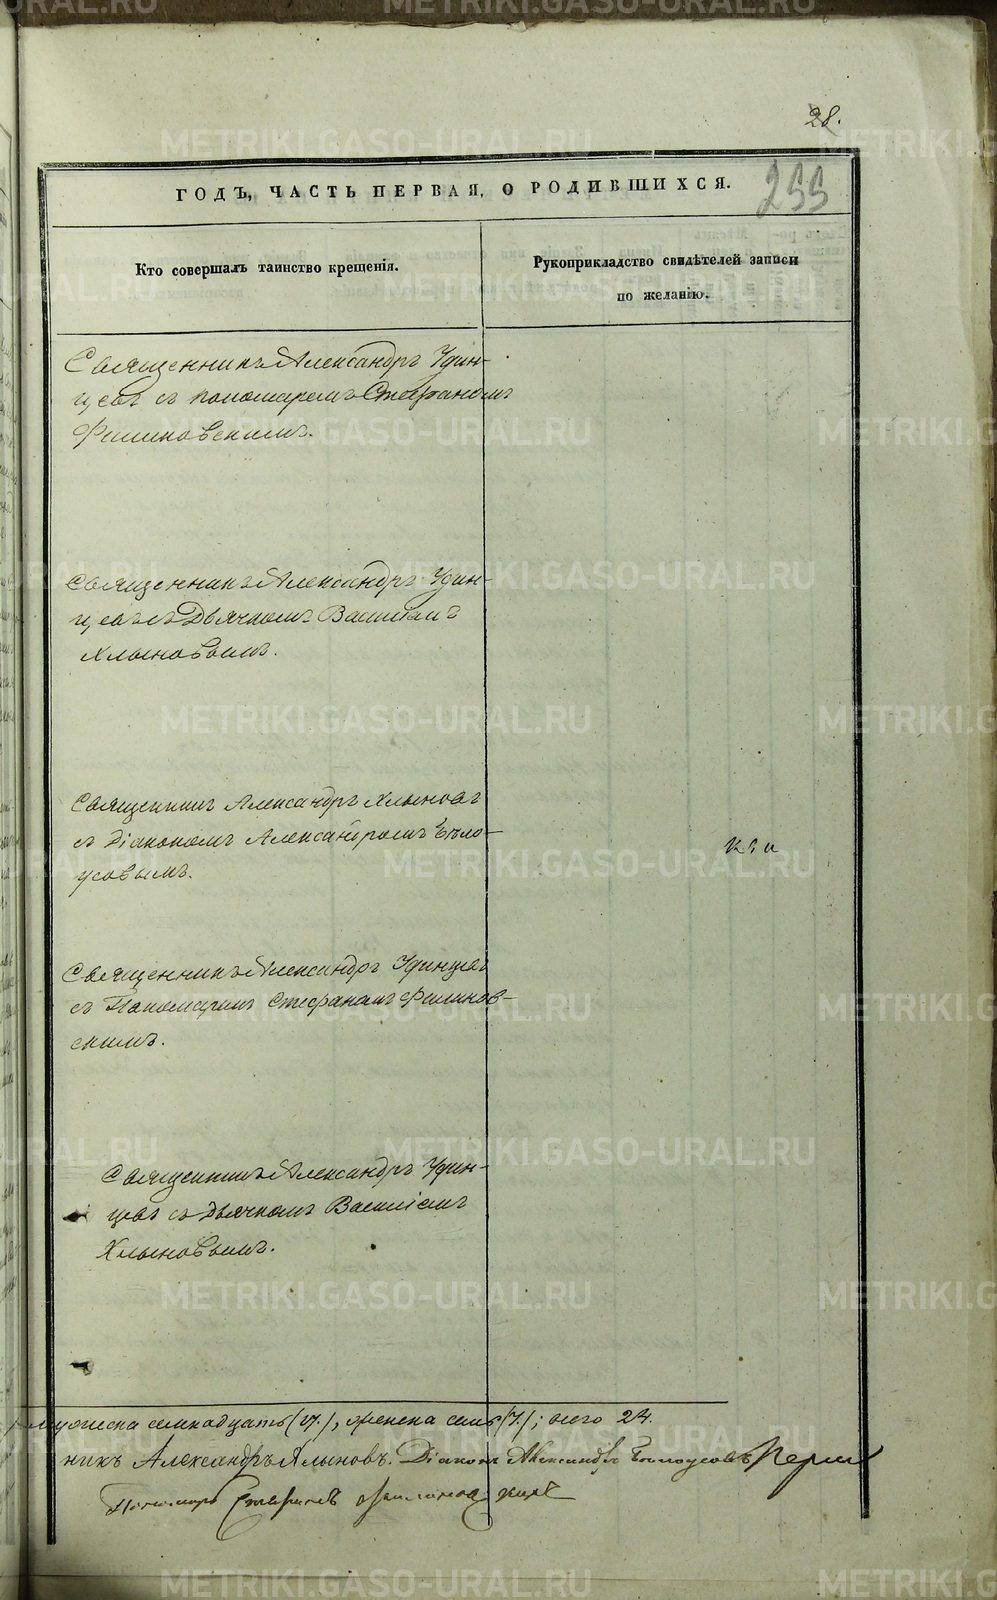 28.
ГОДЪ, ЧАСТЬ ПЕРВАЯ, О РОДИВШИХСЯ.
255
Кто совершалъ таинство крещенія.
Рукоприкладство свидѣтелей записи
по желанію.
Священникъ Александръ Удин-
цевъ съ пономаремъ Стефаномъ
Филиновскимъ.
Священникъ Александръ Удин-
цевъ съ Дьячкомъ Василіемъ
Хлыновымъ.
Священникъ Александръ Хлыновъ
съ Діакономъ Александромъ Бѣло-
усовымъ.
Священникъ Александръ Удинцевъ
съ Пономаремъ Стефаномъ Филинов-
скимъ.
Священникъ Александръ Удин-
цевъ съ Дьячкомъ Василіемъ
Хлыновымъ.
мужеска семнадцать (17.), женска семь (7.); всего 24.
никъ Александръ Хлыновъ. Діаконъ Александръ Бѣлоусовъ
Пономарь Стефанъ Филиновскій
METRIKI.GASO-URAL.RU